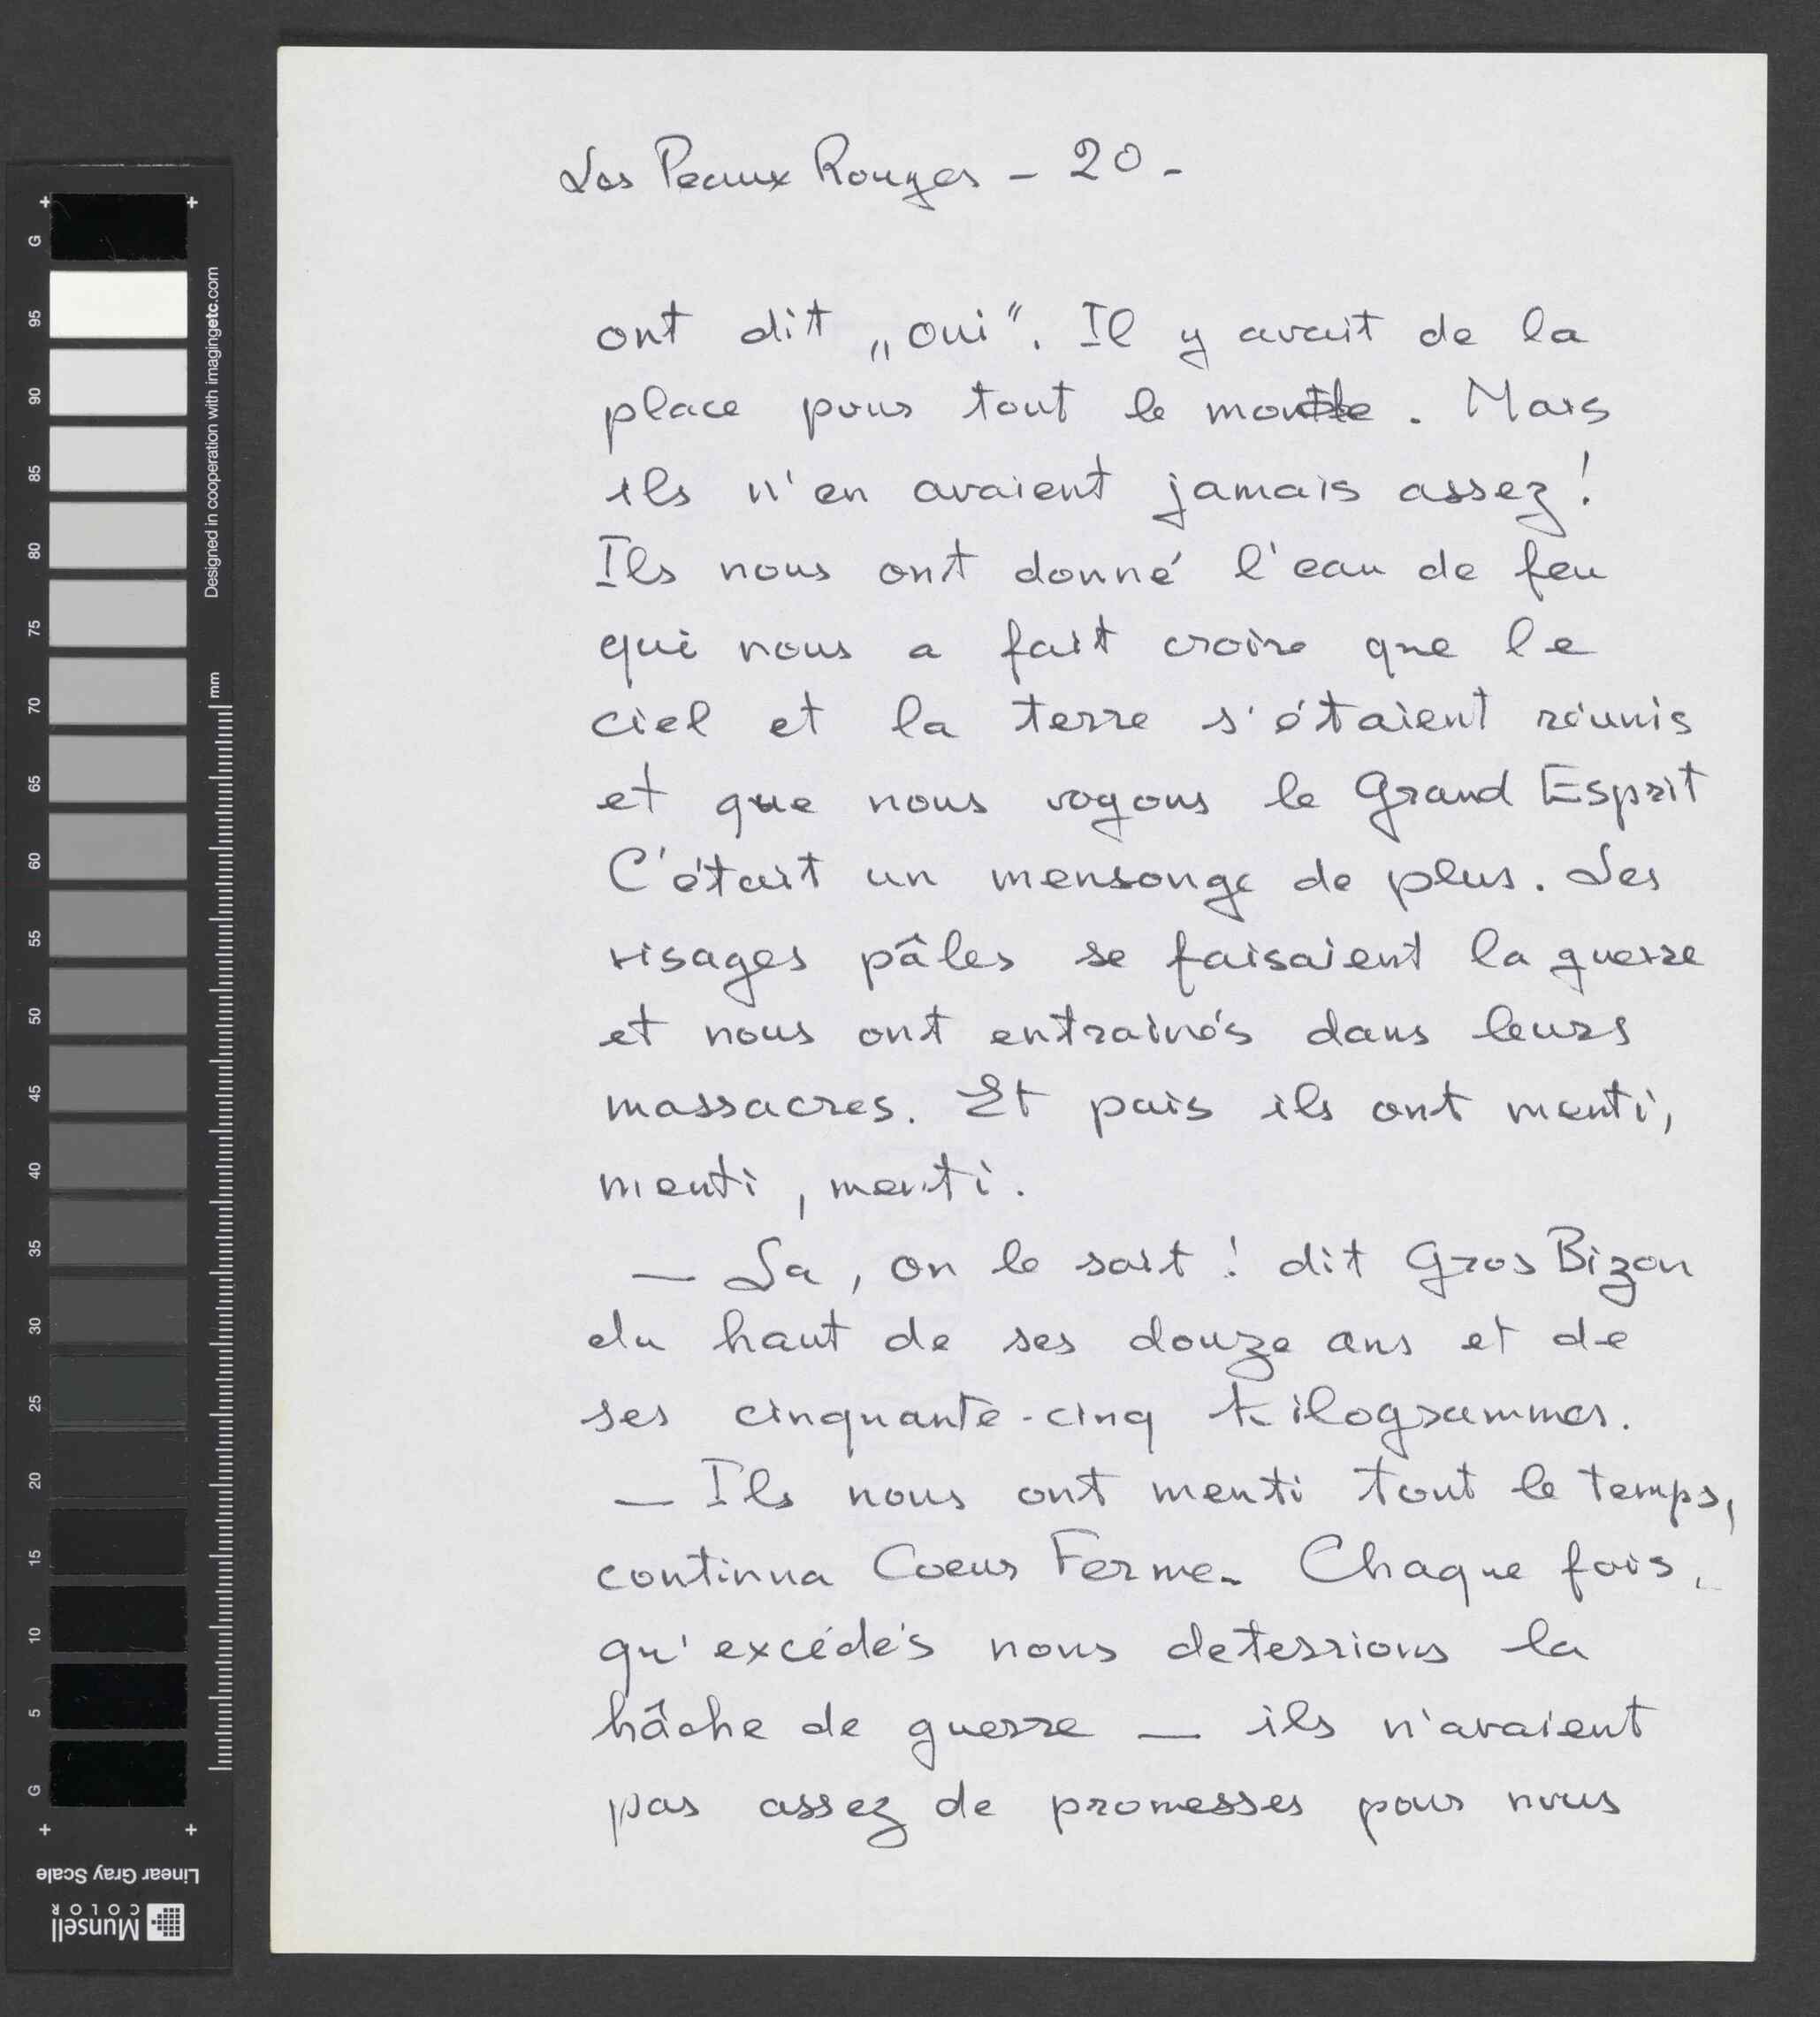 Les Peaux Rouges - 20 -
ont dit „oui“. Il y avait de la
place pour tout le monde. Mais
ils n'en avaient jamais assez!
Ils nous ont donné l'eau de feu
qui nous a fait croire que le
ciel et la terre s'étaient réunis
et que nous voyons le Grand Esprit
C'était un mensonge de plus. Les
visages pâles se faisaient la guerre
et nous ont entrainés dans leurs
massacres. Et puis ils ont menti,
menti, menti.
— Ça, on le sait! dit Gros Bizon
du haut de ses douze ans et de
ses cinquante-cinq kilogrammes.
— Ils nous ont menti tout le temps,
continua Coeur Ferme. Chaque fois,
qu'excédés nous deterrions la
hâche de guerre — ils n'avaient
pas assez de promesses pour nous
G
95
90
85
80
75
70
65
60
55
50
45
40
35
30
25
20
15
10
5
G
Designed in cooperation with imagingetc.com
mm
Linear Gray Scale
Munsell
COLOR